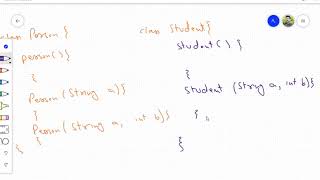 class Person {
person(){
}
Person(String a){
}
Person(String a, int b){
}
{
class Student{
student() {
}
student (String a, int b){
}
}